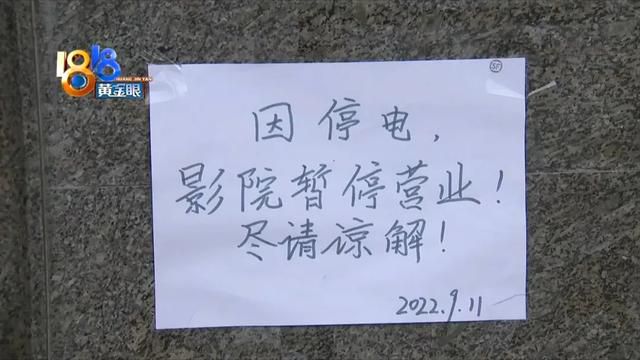 1818
黄金眼
SF
因停电，
影院暂停营业！
尽请谅解！
2022.9.11